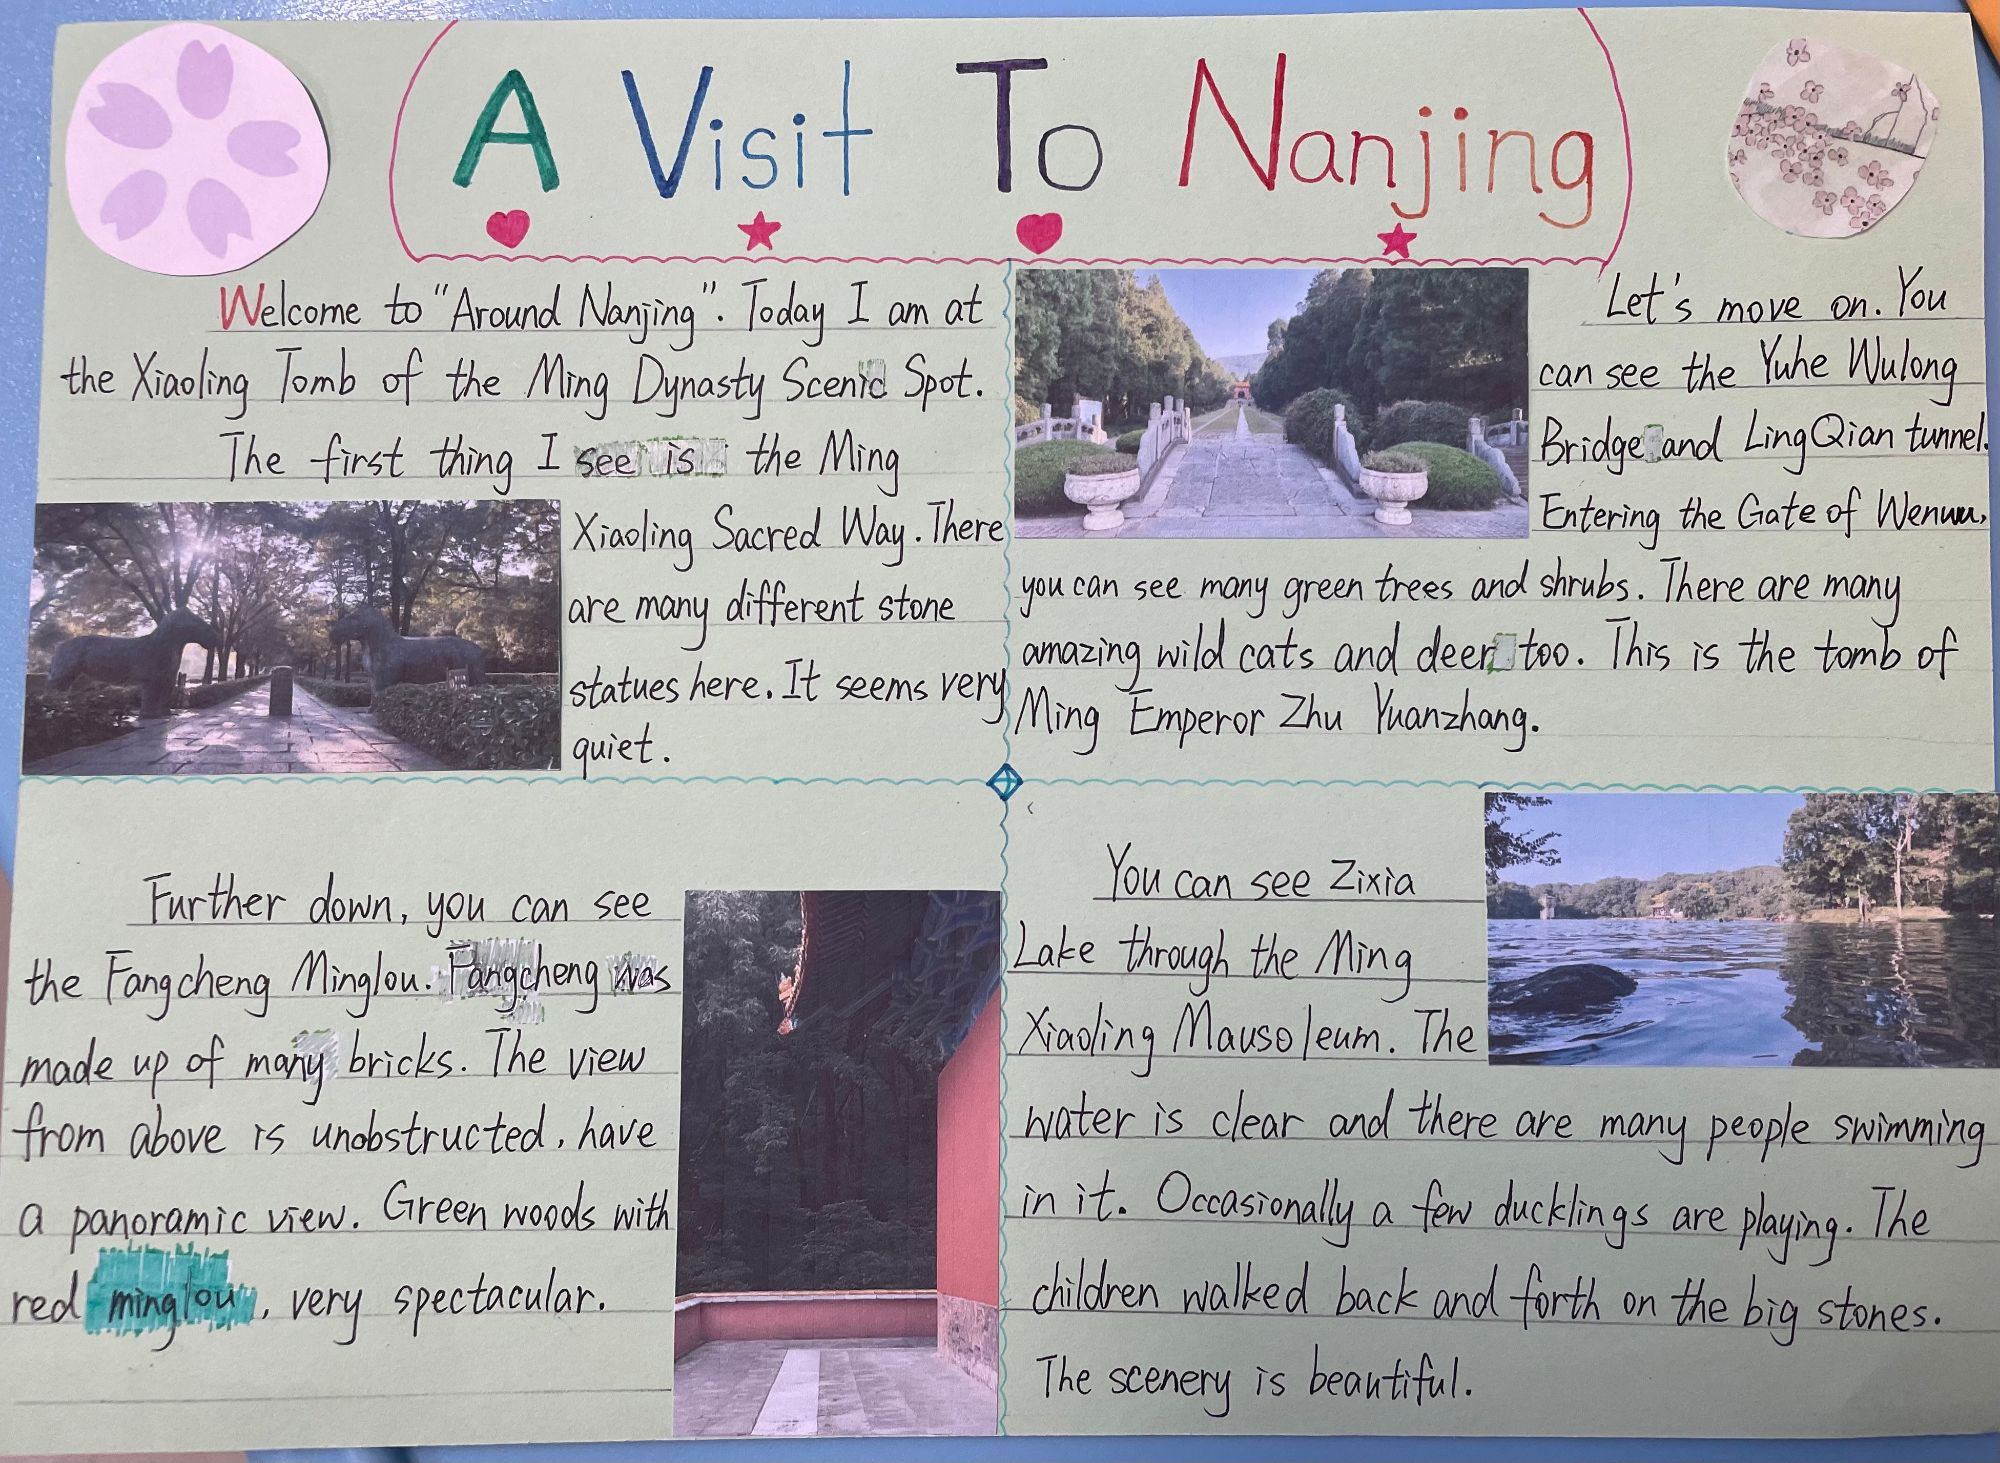 A Visit To Nanjing
Welcome to "Around Nanjing". Today I am at
the Xiaoling Tomb of the Ming Dynasty Scenic Spot.
The first thing I see is the Ming
Xiaoling Sacred Way. There
are many different stone
statues here. It seems very
quiet.
Let's move on. You
can see the Yuhe Wulong
Bridge and LingQian tunnel.
Entering the Gate of Wenwu,
you can see many green trees and shrubs. There are many
amazing wild cats and deer too. This is the tomb of
Ming Emperor Zhu Yuanzhang.
Further down, you can see
the Fangcheng Minglou. Fangcheng was
made up of many bricks. The view
from above is unobstructed, have
a panoramic view. Green woods with
red minglou, very spectacular.
You can see Zixia
Lake through the Ming
Xiaoling Mausoleum. The
water is clear and there are many people swimming
in it. Occasionally a few ducklings are playing. The
children walked back and forth on the big stones.
The scenery is beautiful.